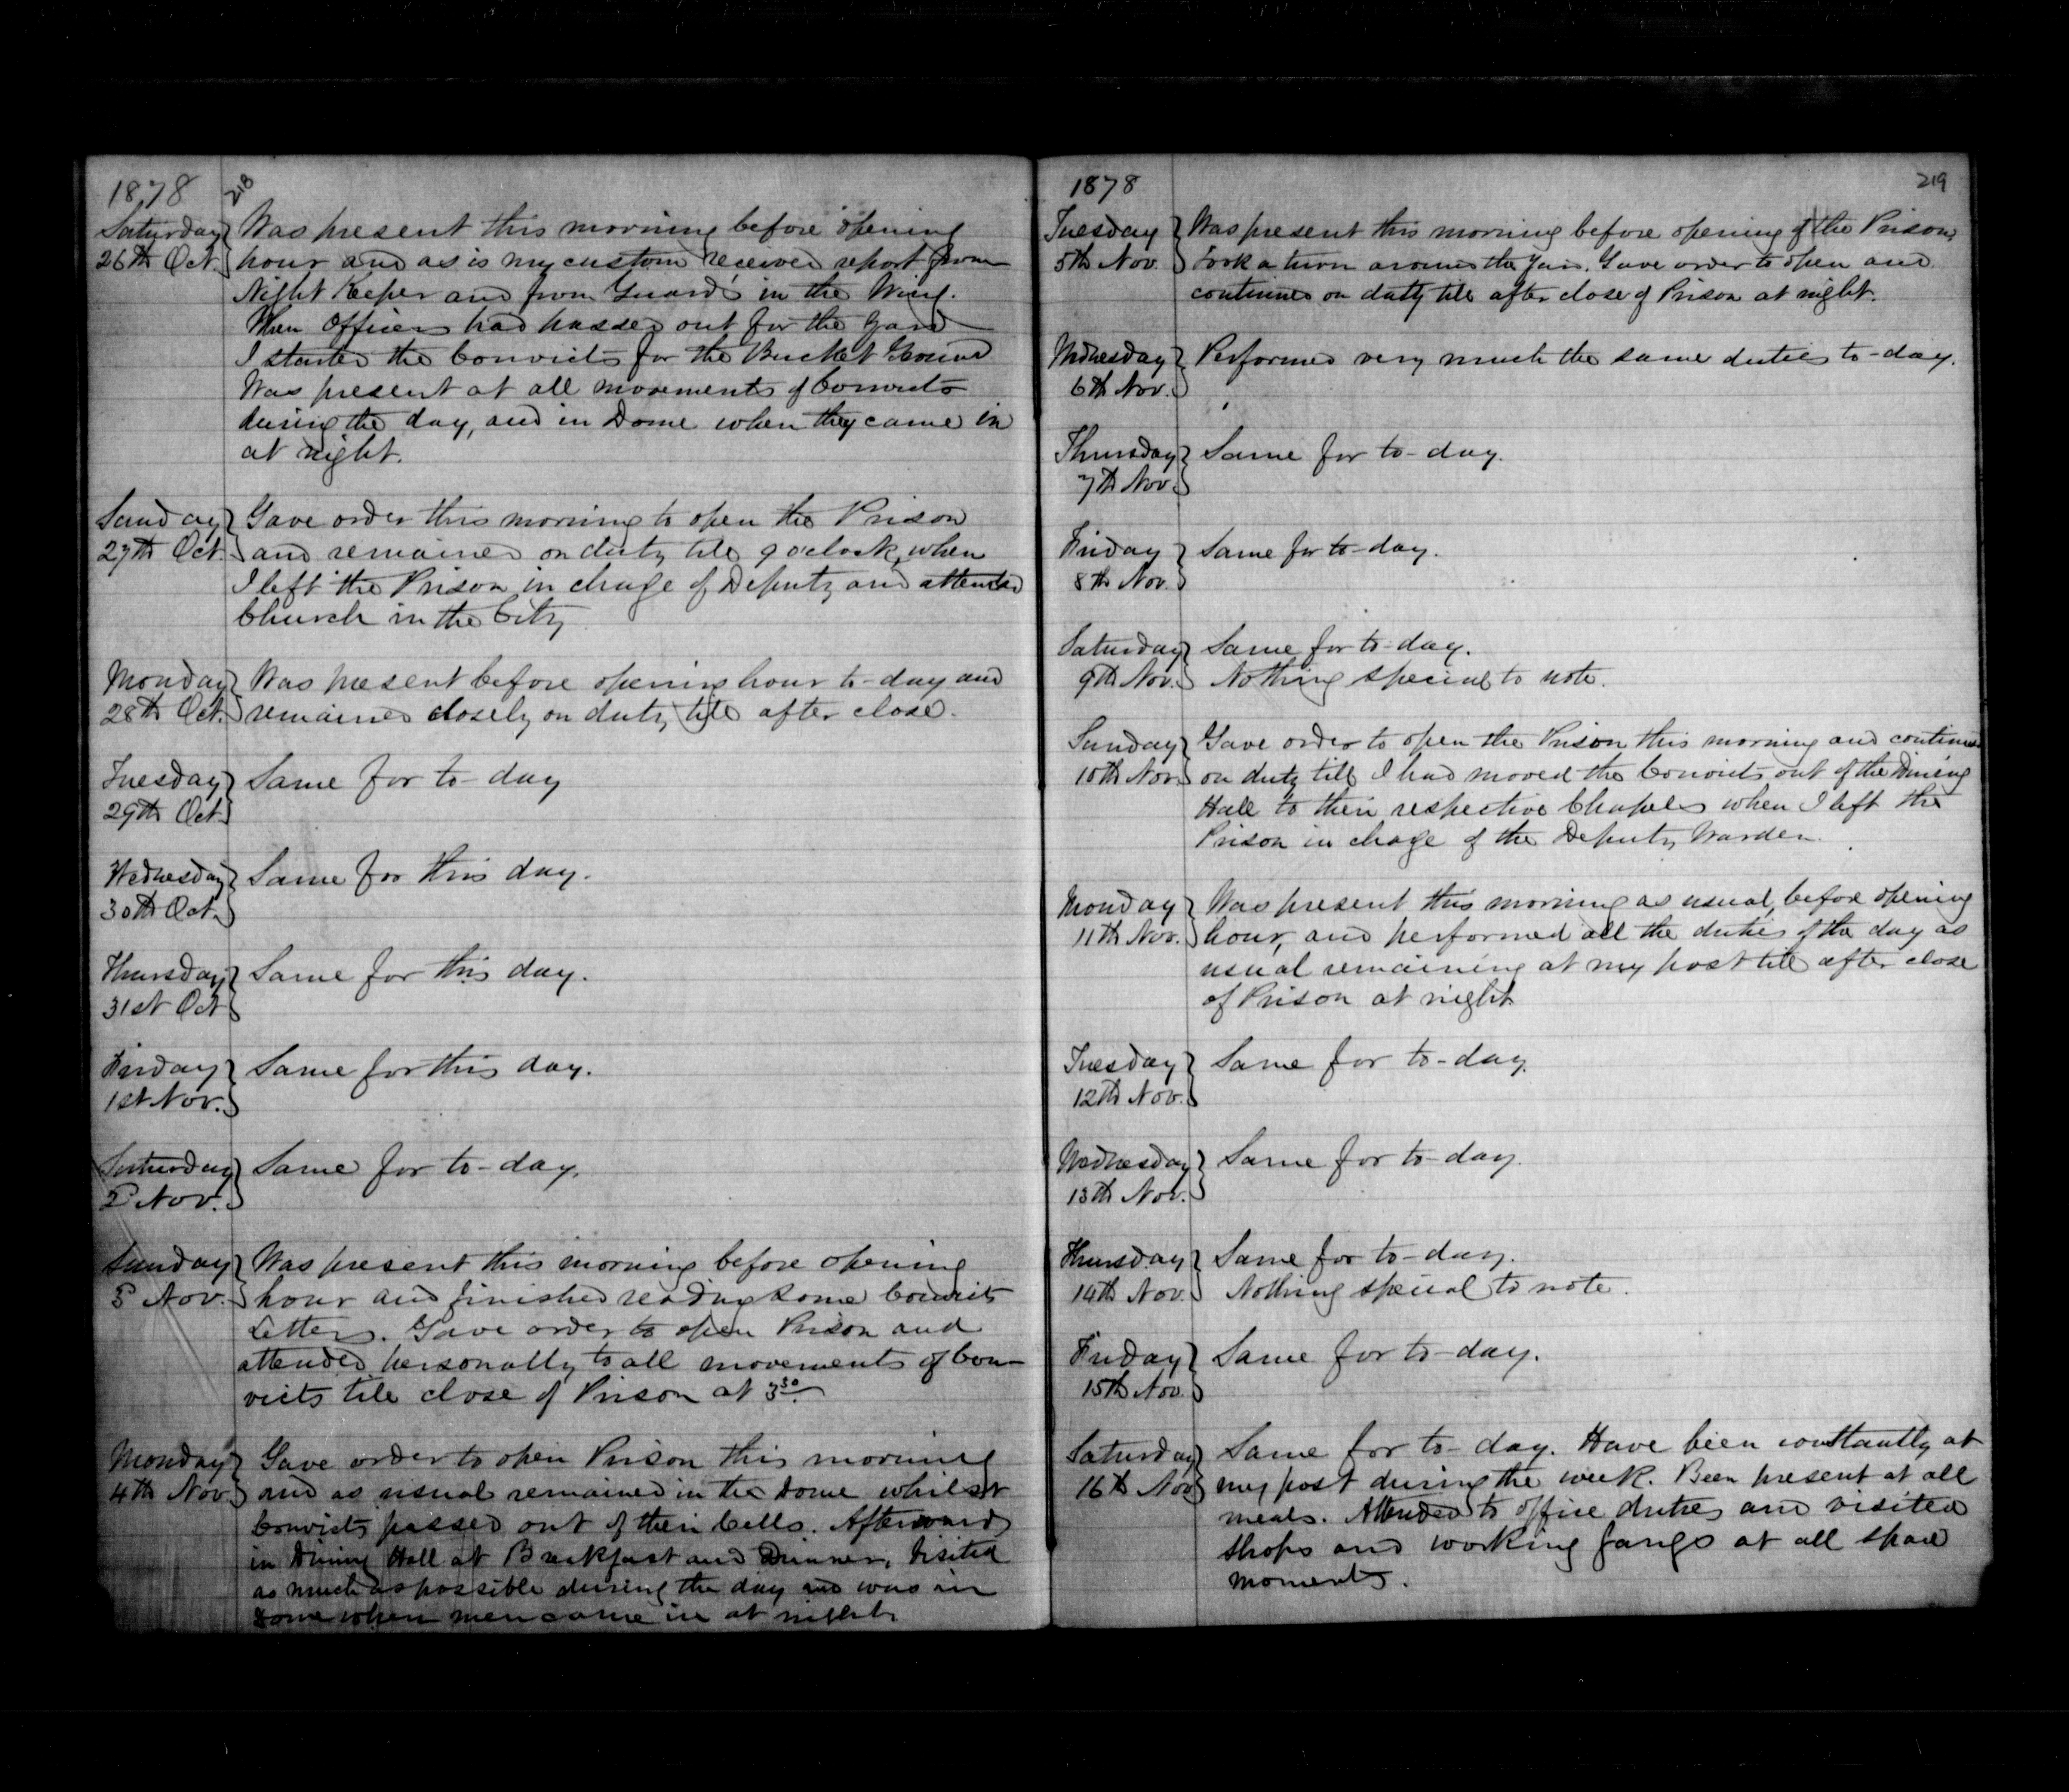 1878 218
Saturday Was present this morning before opening
26th Oct. hour and as is my custom received report from
Night Keeper and from Guards in the Wing.
When Officers had passed out for the Yard
I started the Convicts for the Bucket Ground
Was present at all movements of Convicts
during the day, and in Dome when they came in
at night.
Sunday Gave order this morning to open the Prison
27th Oct. and remained on duty till 9 o'clock, when
I left the Prison in charge of Deputy and attended
Church in the City
Monday Was present before opening hour to-day and
28th Oct. remained closely on duty till after close.
Tuesday Same for to-day
29th Oct.
Wednesday Same for this day.
30th Oct.
Thursday Same for this day.
31st Oct
Friday Same for this day.
1st Nov.
Saturday Same for to-day.
2d Nov.
Sunday Was present this morning before opening
3d Nov. hour and finished reading some Convicts
Letters. Gave order to open Prison and
attended personally to all movements of Con-
victs till close of Prison at 3 30.
Monday Gave order to open Prison this morning
4th Nov. and as usual remained in the Dome whilst
Convicts passed out of their Cells. Afterwards
in Dining Hall at Breakfast and Dinner, Visited
as much as possible during the day and was in
Dome when men came in at night.
1878 219
Tuesday Was present this morning before opening of the Prison,
5th Nov. Took a turn around the Yard. Gave order to open and
continued on duty till after close of Prison at night.
Wednesday Performed very much the same duties to-day.
6th Nov.
Thursday Same for to-day.
7th Nov.
Friday Same for to-day.
8th Nov.
Saturday Same for to-day.
9th Nov. Nothing special to note.
Sunday Gave order to open the Prison this morning and continued
10th Nov. on duty till I had moved the Convicts out of the Dining
Hall to their respective Chapels when I left the
Prison in charge of the Deputy Warden.
Monday Was present this morning as usual, before opening
11th Nov. hour, and performed all the duties of the day as
usual remaining at my post till after close
of Prison at night
Tuesday Same for to-day.
12th Nov.
Wednesday Same for to-day.
13th Nov.
Thursday Same for to-day.
14th Nov. Nothing special to note.
Friday Same for to-day.
15th Nov.
Saturday Same for to-day. Have been constantly at
16th Nov my post during the week. Been present at all
meals. Attended to office duties and visited
shops and working gangs at all spare
moments.